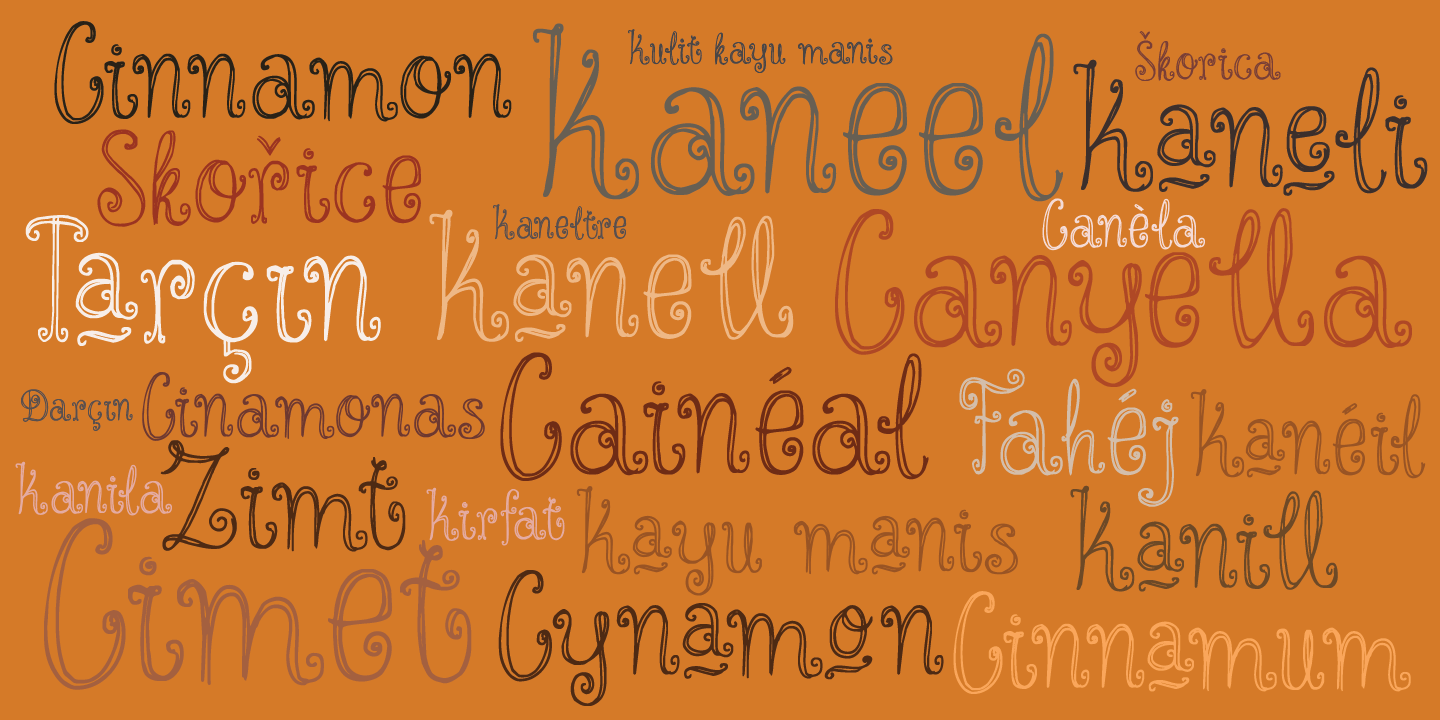 Cinnamon
Kaneel
Kulit kayu manis
Škorica
Kaneli
Skořice
Tarçın
Kaneltre
Kanell
Canèla
Canyella
Darçın
Cinamonas
Cainéal
Fahéj
Kanéil
Kanila
Zimt
Kirfat
Kayu manis
Kanill
Cimet
Cynamon
Cinnamum